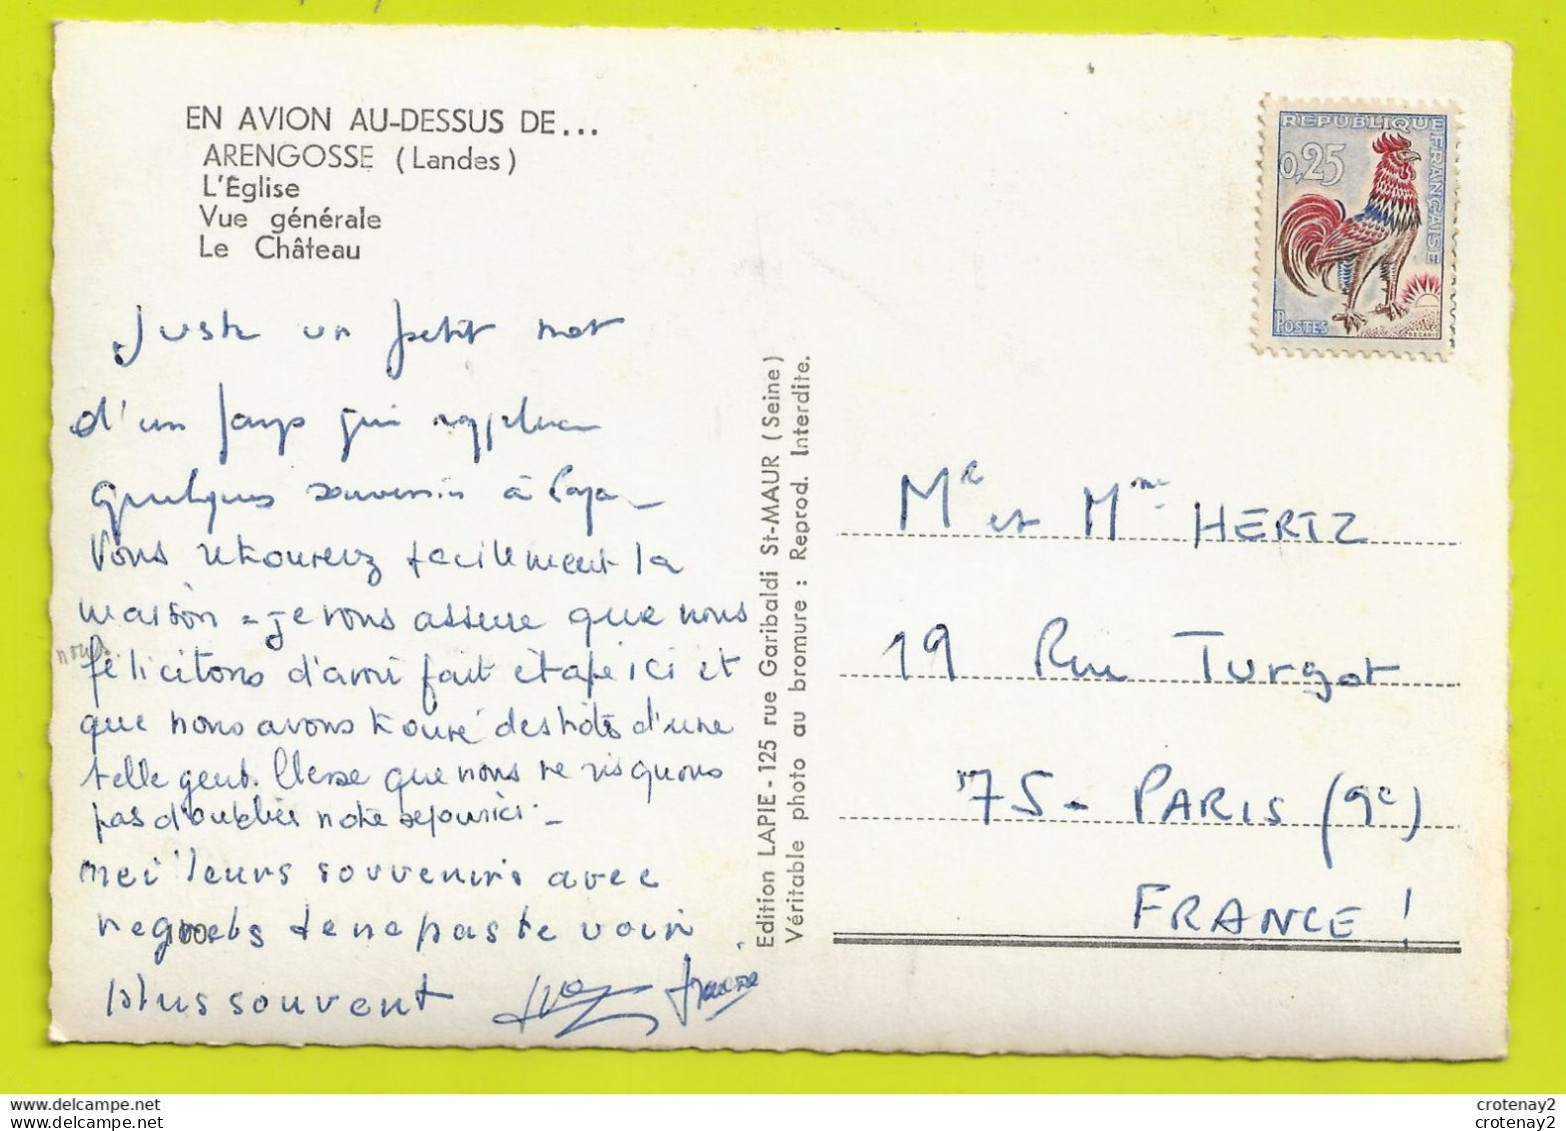 EN AVION AU-DESSUS DE...
ARENGOSSE (Landes)
L'Église
Vue générale
Le Château
Juste un petit mot
d'un pays qui rappellera
quelques souvenirs à Papa -
Vous retrouverez facilement la
maison - je vous assure que nous
nous
félicitons d'avoir fait étape ici et
que nous avons trouvé des hôtes d'une
telle gent. llesse que nous ne risquons
pas d'oublier notre séjour ici -
meilleurs souvenirs avec
regrets de ne pas te voir
plus souvent
100
Edition LAPIE - 125 rue Garibaldi St-MAUR (Seine)
Véritable photo au bromure : Reprod. Interdite.
REPUBLIQUE FRANÇAISE
0,25
POSTES
DECARIS
Mr et Mme HERTZ
19 Rue Turgot
75 - PARIS (9e)
FRANCE !
crotenay2
crotenay2
crotenay2
crotenay2